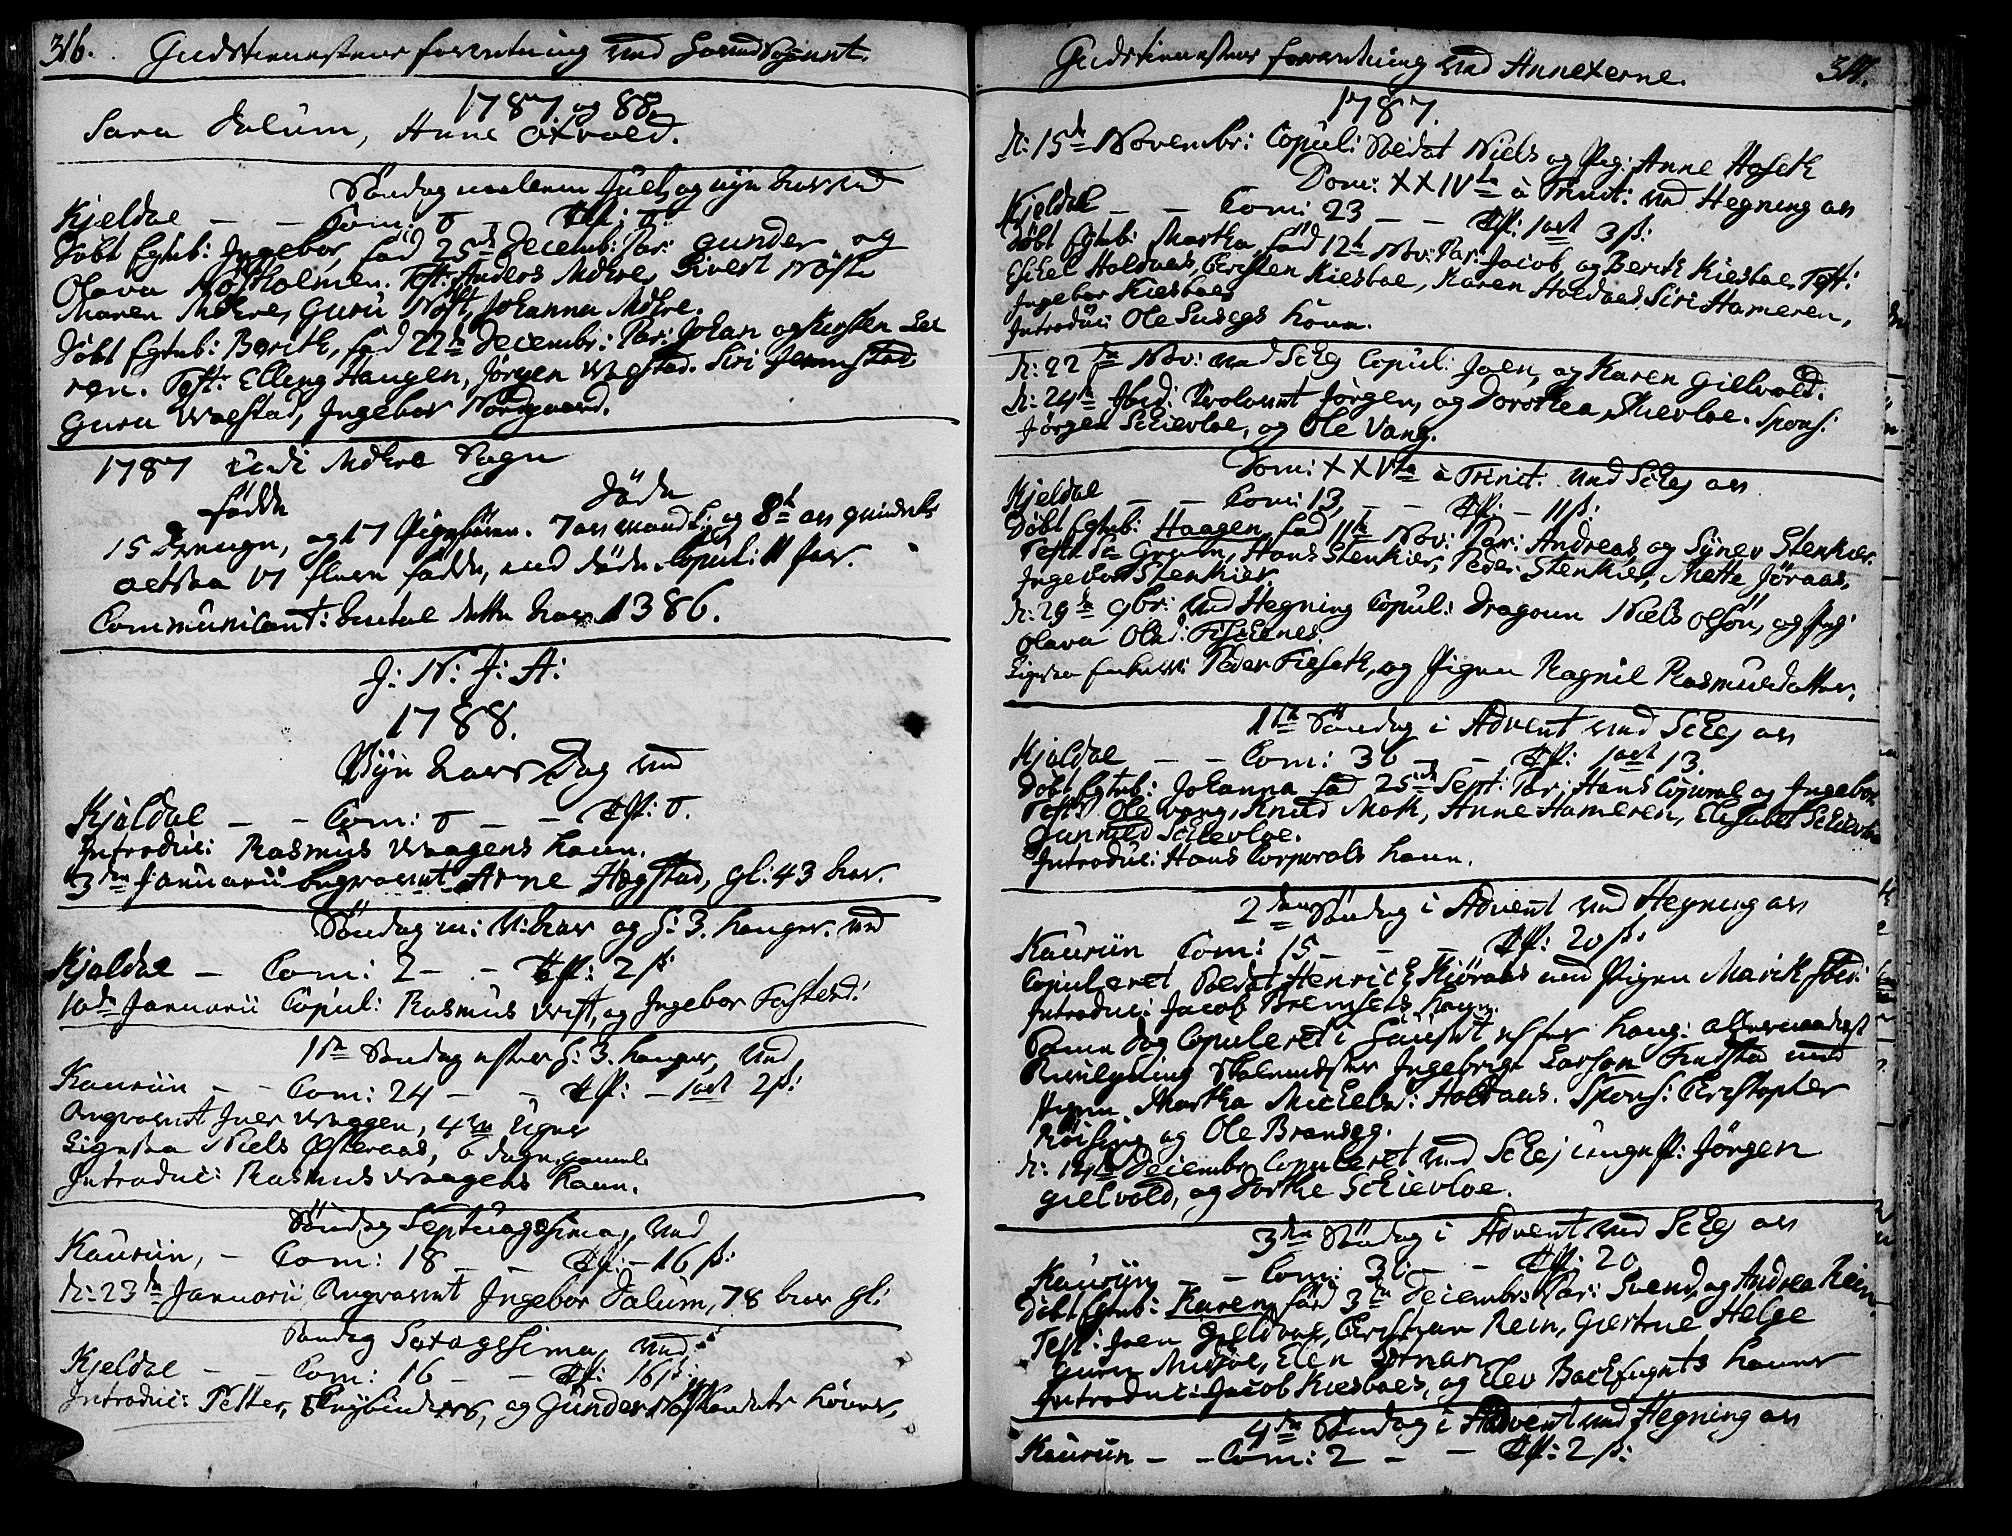 316. Gudstienestens forretning ved Hovedsognet.
1787 og 88.
Sara Dalum, Anne Oxvold.
Søndag mellem Juel, og nyt Aar ved
Kjeldal — — Com: 0 — Tfl: 0.
Døbt Egteb: Ingebor, fød 25de Decemb: Par: Gunder og
Olava Nøstholmen. Test: Anders Mdkre, Sivert Nøst
Maren Mdkre, Guru Nøst, Johanna Mdkre.
Døbt Egteb: Berith, fød 22de Decembr: Par: Johan og Kirsten Lee
ren. Test: Elling Haugen, Jørgen Wæstad. Siri Jermstad
Guru Wæstad, Ingebor Nordgaard.
1787 udi Mdkre Sogn
fødde Døde
15 Drenge, og 17 Pigebørn. 7 af mandk: og 8te af qvindek:
altsaa 17 fleere fødde, end døde. Copul: 11 Par.
Communicant: Antal dette Aar 1386.
J: N: J: A:
1788.
Nyt Aars Dag ved
Kjeldal — — Com: 0 — — Tfl: 0.
Introduc: Rasmus Waagens Kone.
3de Januarii begravet Arne Hegstad, gl: 43 Aar.
Søndag m: N: Aar og H: 3. Konger, ved
Kjeldal — Com: 2 — — Tfl: 2 ß:
10de Januarii Copul: Rasmus Wrst, og Ingebor Fosterd:
1te Søndag efter H: 3. Konger, ved
Kaurin — — Com: 24 — — Tfl: — 1ort 2ß:
Begravet Iver Waagen, 4re Uger
Ligesaa Niels Østeraas, 6 dage gamel.
Introduc: Rasmus Waagens Kone.
Søndag Septuagesima, ved
Kaurin, — Com: 18 — — Tfl: — 16 ß:
d: 23de Januarii Begravet Ingebor Dalum, 78 Aar gl:
Søndag Sexagesima, ved
Kjeldal — — Com: 16 — — Tfl: 16 ß:
Introduc: Petter, og Gunder Nøstholmens Koner,
Gudstienestens forretning ved Annexerne. 317.
1787.
d: 15de Novembr: Copul: Soldat Niels og Pig: Anne Hoseth
Dom: XXIVta à Trinit: ved Hegning af
Kjeldal — — Com: 23 — — Tfl: 1ort 3 ß:
Døbt Egteb: Martha, fød 12te Nov: Par: Jacob, og Berith Kiesboe, Test:
Eschel Holdaas, Christen Kiesboe, Karen Holdaas, Siri Hameren,
Ingebor Kiesboes
Introduc: Ole Susegs Kone.
d: 22de Nov: ved Schej Copul: Joen, og Karen Gielvold.
d: 24de Ibid: Trolovet Jørgen, og Dorothea Skievloe. Spons:
Jørgen Schievloe, og Ole Vang.
Dom: XXVta à Trinit: ved Schej af
Kjeldal — — Com: 13, — — Tfl: — 11 ß:
Døbt Egteb: Haagen, fød 11te Nov: Par: Andreas, og Synev Stenkier.
Test: Grum, Hans Stenkier, Peder Stenkier, Mette Jøraas,
Ingebor Stenkier.
d: 29de 9br: ved Hegning Copul: Dragoun Niels Olsøn, og Pig:
Olava Olsd: Fischenes.
Ligesaa Peder Fieseth, og Pigen Ragnil Rasmusdatter.
1te Søndag i Advent ved Schej af
Kjeldal — — Com: 36 — — Tfl: 1ort 13.
Døbt Egteb: Johanna fød 25de Sept: Par: Hans Coporal og Ingebor
Test: Ole Vang, Knud Moth, Anne Hameren, Elisabet Schievloe
Gunnild Schievloe.
Introduc: Hans Corporals Kone.
2den Søndag i Advent ved Hegning af
Kaurin Com: 15 — — Tfl: 20 ß:
Copuleret Soldat Henrich Kjøraas med Pigen Marith Ibid:
Introduc: Jacob Bremsets Kone.
Same dag Copuleret i Huuset efter Kong: allernaadigst
Bevilgning Skolemester Ingebrigt Larsøn Findstad med
Pigen Martha Michelsd: Holdaas. Spons: Christopher
Røising og Ole Brandeg.
d: 14de Decembr: Copuleret ved Schej unge f: Jørgen
Gielvold, og Dorthe Schievloe.
3de Søndag i Advent ved Schej af
Kaurin — — Com: 36 — — Tfl: 20
Døbt Egteb: Karen, fød 3de Decembr: Par: Svend, og Andrea Rein
Test: Joen Gjeldvold, Christian Rein, Giertrue Helge
Guru Musøe, Elen Ørnan
Introduc: Jacob Kiesboes, og Elev Bachfugets Koner
4de Søndag i Advent ved Hegning af
Kaurin — — Com: 2 — — Tfl: 2 ß: